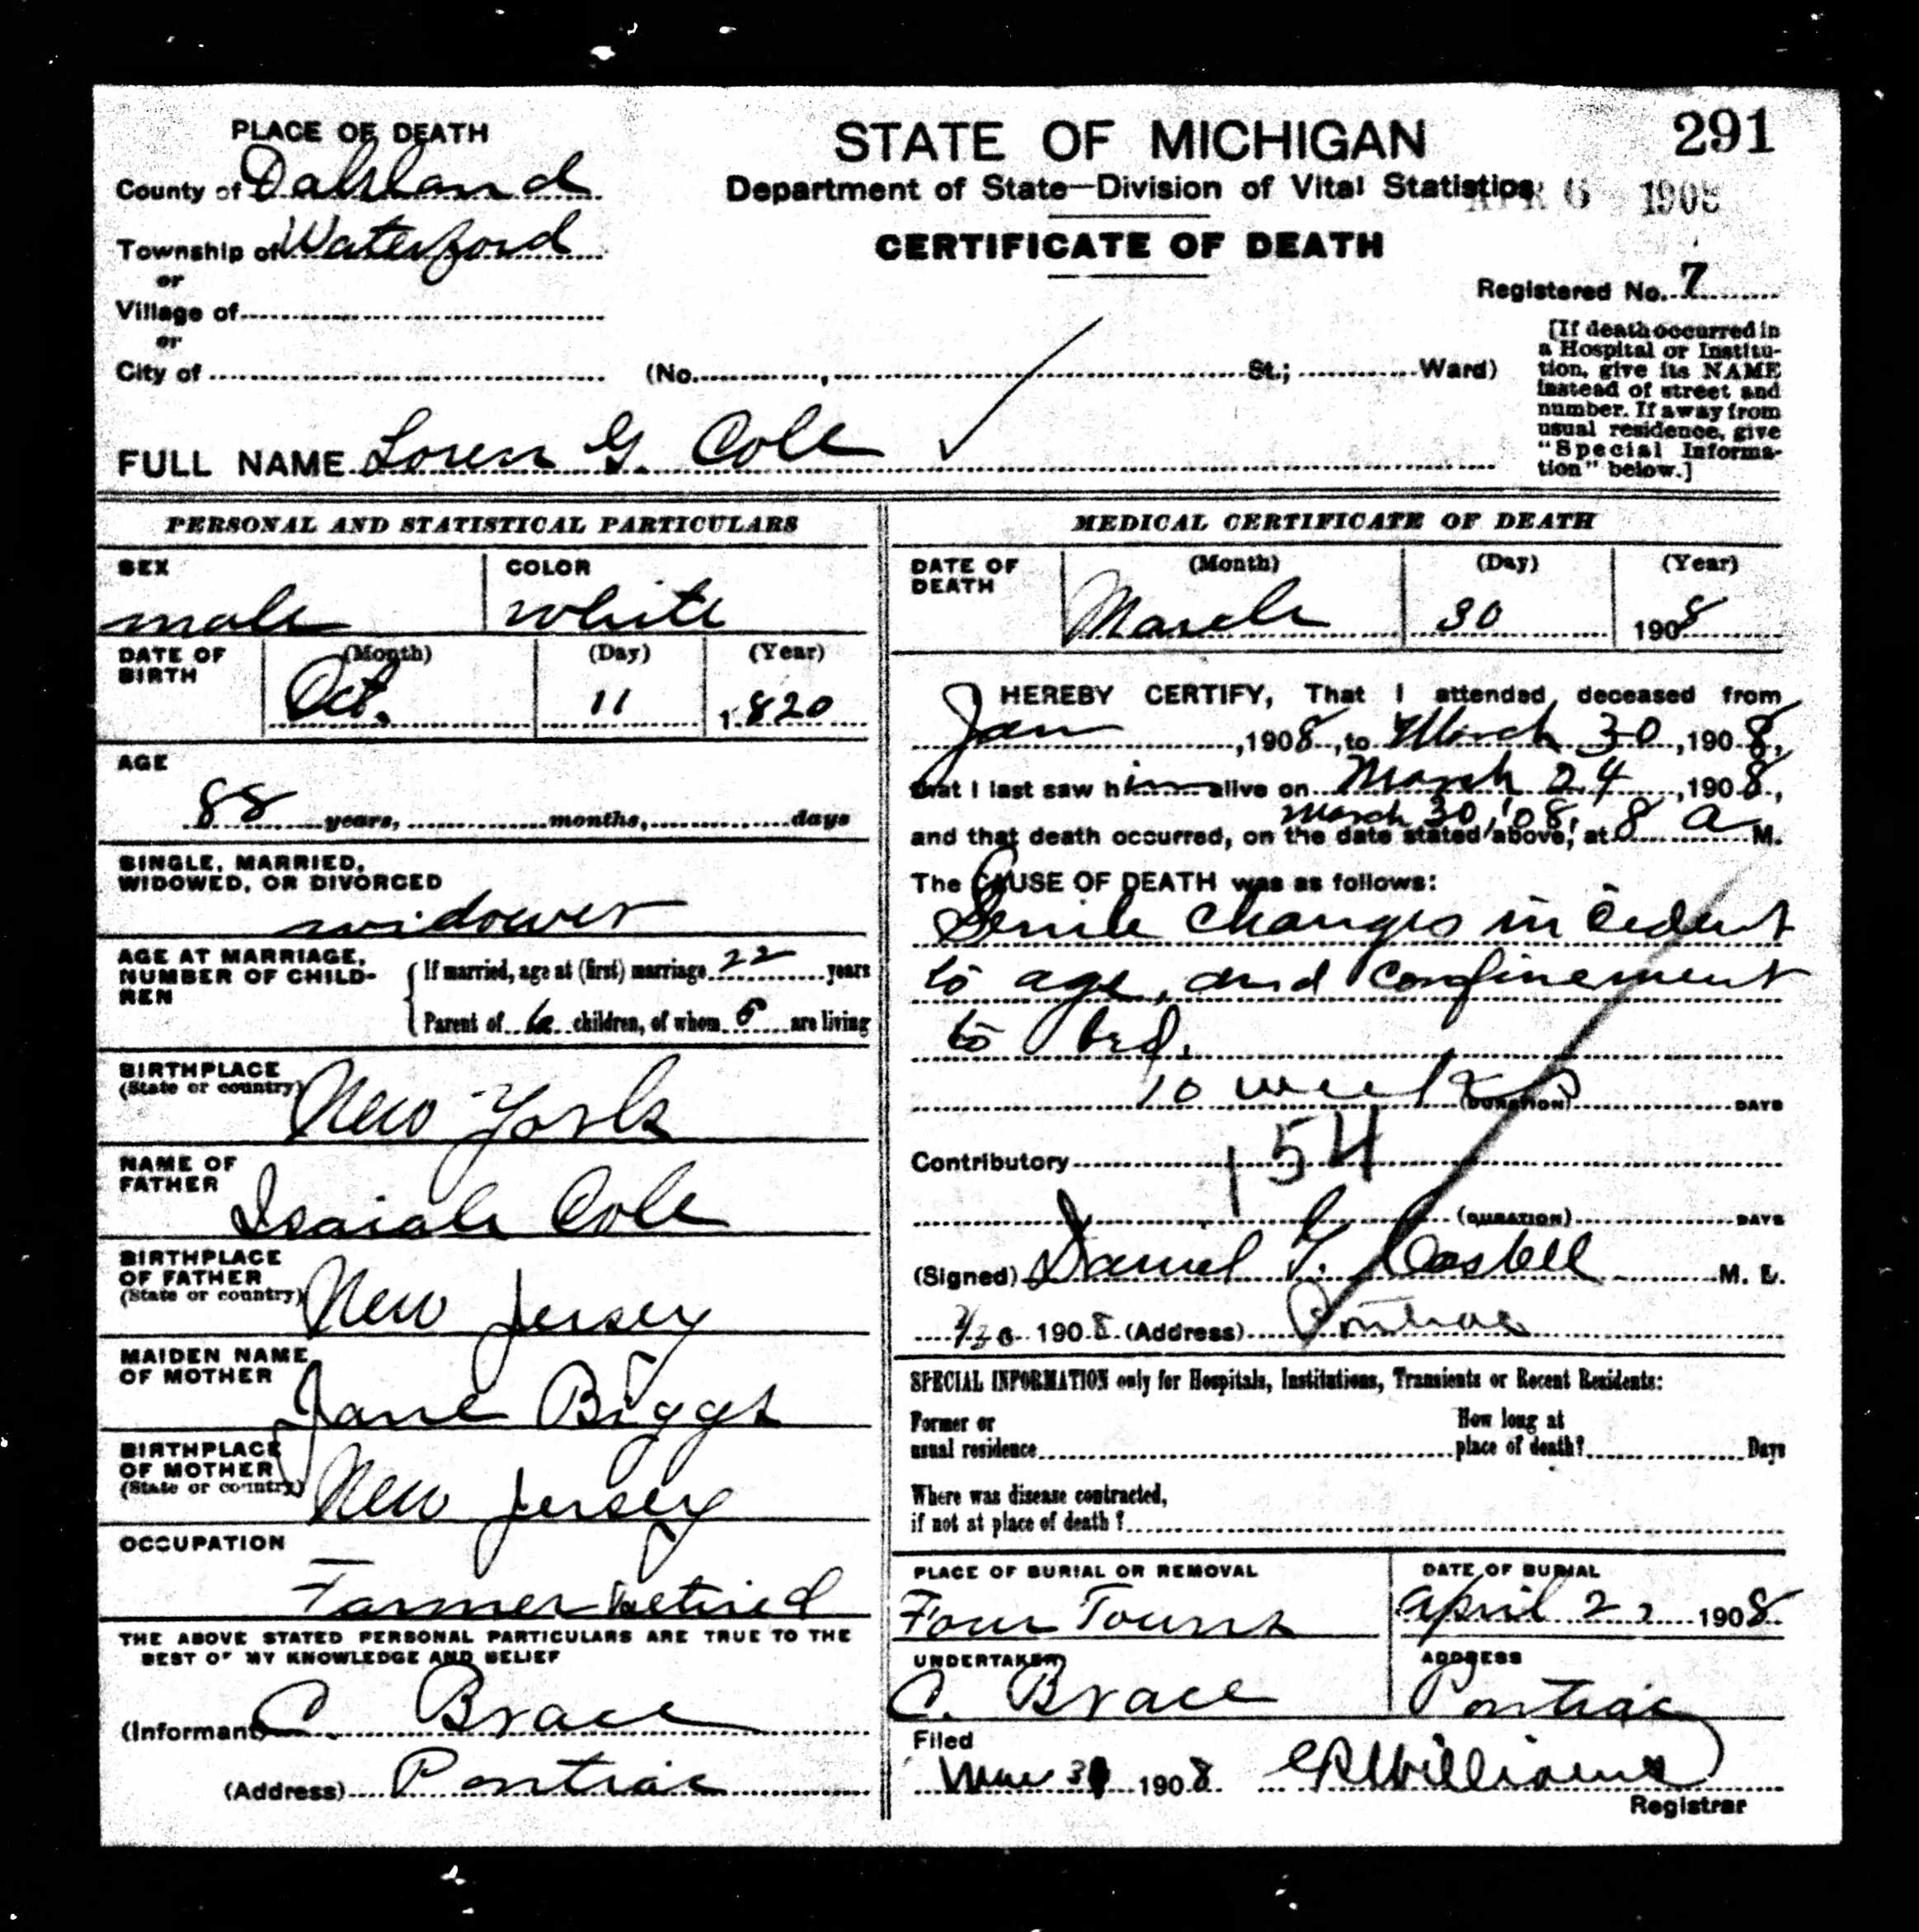 291
PLACE OF DEATH
STATE OF MICHIGAN
County of Oakland
Department of State—Division of Vital Statistics
APR 6 1908
Township of Waterford
CERTIFICATE OF DEATH
or
Registered No. 7
Village of
or
City of (No. , St.; Ward)
[If death occurred in
a Hospital or Institu-
tion, give its NAME
instead of street and
number. If away from
usual residence, give
"Special Informa-
tion" below.]
FULL NAME Loren G. Cole
PERSONAL AND STATISTICAL PARTICULARS
SEX
male
COLOR
white
DATE OF
BIRTH
(Month) (Day) (Year)
Oct. 11 1820
AGE
88 years, months, days
SINGLE, MARRIED,
WIDOWED, OR DIVORCED
widower
AGE AT MARRIAGE,
NUMBER OF CHILD-
REN
If married, age at (first) marriage 22 years
Parent of children, of whom are living
BIRTHPLACE
(State or country)
New York
NAME OF
FATHER
Isaiah Cole
BIRTHPLACE
OF FATHER
(State or country)
New Jersey
MAIDEN NAME
OF MOTHER
Jane Biggs
BIRTHPLACE
OF MOTHER
(State or country)
New Jersey
OCCUPATION
Farmer Retired
THE ABOVE STATED PERSONAL PARTICULARS ARE TRUE TO THE
BEST OF MY KNOWLEDGE AND BELIEF
(Informant) C. Brace
(Address) Pontiac
MEDICAL CERTIFICATE OF DEATH
DATE OF
DEATH
(Month) (Day) (Year)
March 30 1908
I HEREBY CERTIFY, That I attended deceased from
Jan , 1908, to March 30, 1908,
that I last saw him alive on March 24, 1908,
March 30, '08,
and that death occurred, on the date stated above, at 8 a M.
The CAUSE OF DEATH was as follows:
Senile changes incedent
to age, and confinement
to bed.
10 weeks
(DURATION) DAYS
Contributory 154
(DURATION) DAYS
(Signed) Daniel G. Castell M. D.
1908 (Address) Pontiac
SPECIAL INFORMATION only for Hospitals, Institutions, Transients or Recent Residents:
Former or
usual residence
How long at
place of death? Days
Where was disease contracted,
if not at place of death?
PLACE OF BURIAL OR REMOVAL
Four Towns
DATE OF BURIAL
April 2 1908
UNDERTAKER
C. Brace
ADDRESS
Pontiac
Filed
Mar 1908 Williams
Registrar